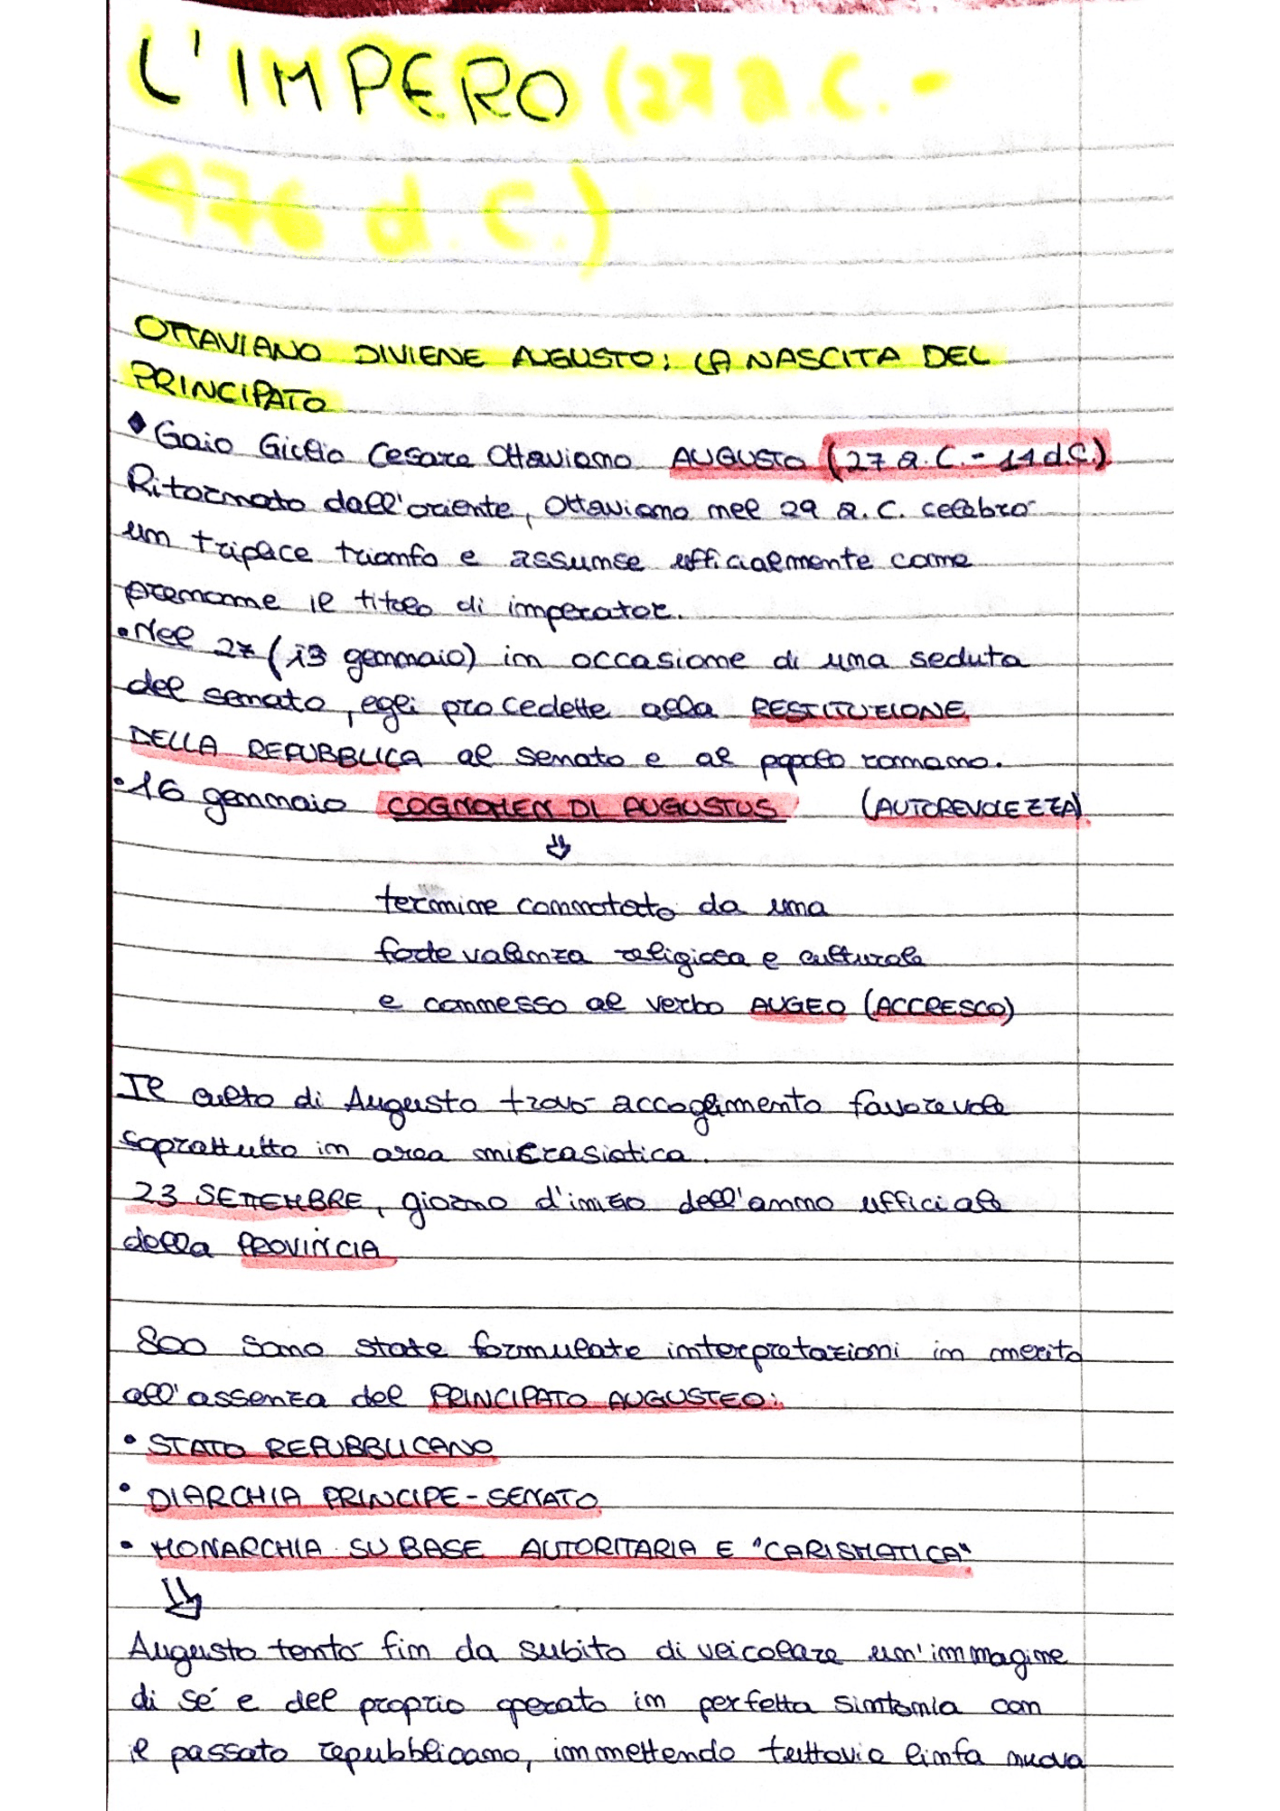 L'IMPERO (27 a.C. -
476 d.C.)
OTTAVIANO DIVIENE AUGUSTO: LA NASCITA DEL
PRINCIPATO
◆ Gaio Giulio Cesare Ottaviano AUGUSTO (27 a.C. - 14 d.C.)
Ritornato dall'oriente, Ottaviano nel 29 a.C. celebrò
un triplice trionfo e assunse ufficialmente come
prenome il titolo di imperator.
• Nel 27 (13 gennaio) in occasione di una seduta
del senato, egli procedette alla RESTITUZIONE
DELLA REPUBBLICA al senato e al popolo romano.
• 16 gennaio COGNOMEN DI AUGUSTUS (AUTOREVOLEZZA)
⇓
termine connotato da una
forte valenza religiosa e culturale
e connesso al verbo AUGEO (ACCRESCO)
Il culto di Augusto trovò accoglimento favorevole
soprattutto in area microasiatica.
23 SETTEMBRE, giorno d'inizio dell'anno ufficiale
della PROVINCIA
800 sono state formulate interpretazioni in merito
all'assenza del PRINCIPATO AUGUSTEO:
• STATO REPUBBLICANO
• DIARCHIA PRINCIPE-SENATO
• MONARCHIA SU BASE AUTORITARIA E "CARISMATICA"
⇓
Augusto tentò fin da subito di veicolare un'immagine
di sé e del proprio operato in perfetta sintonia con
il passato repubblicano, immettendo tuttavia linfa nuova